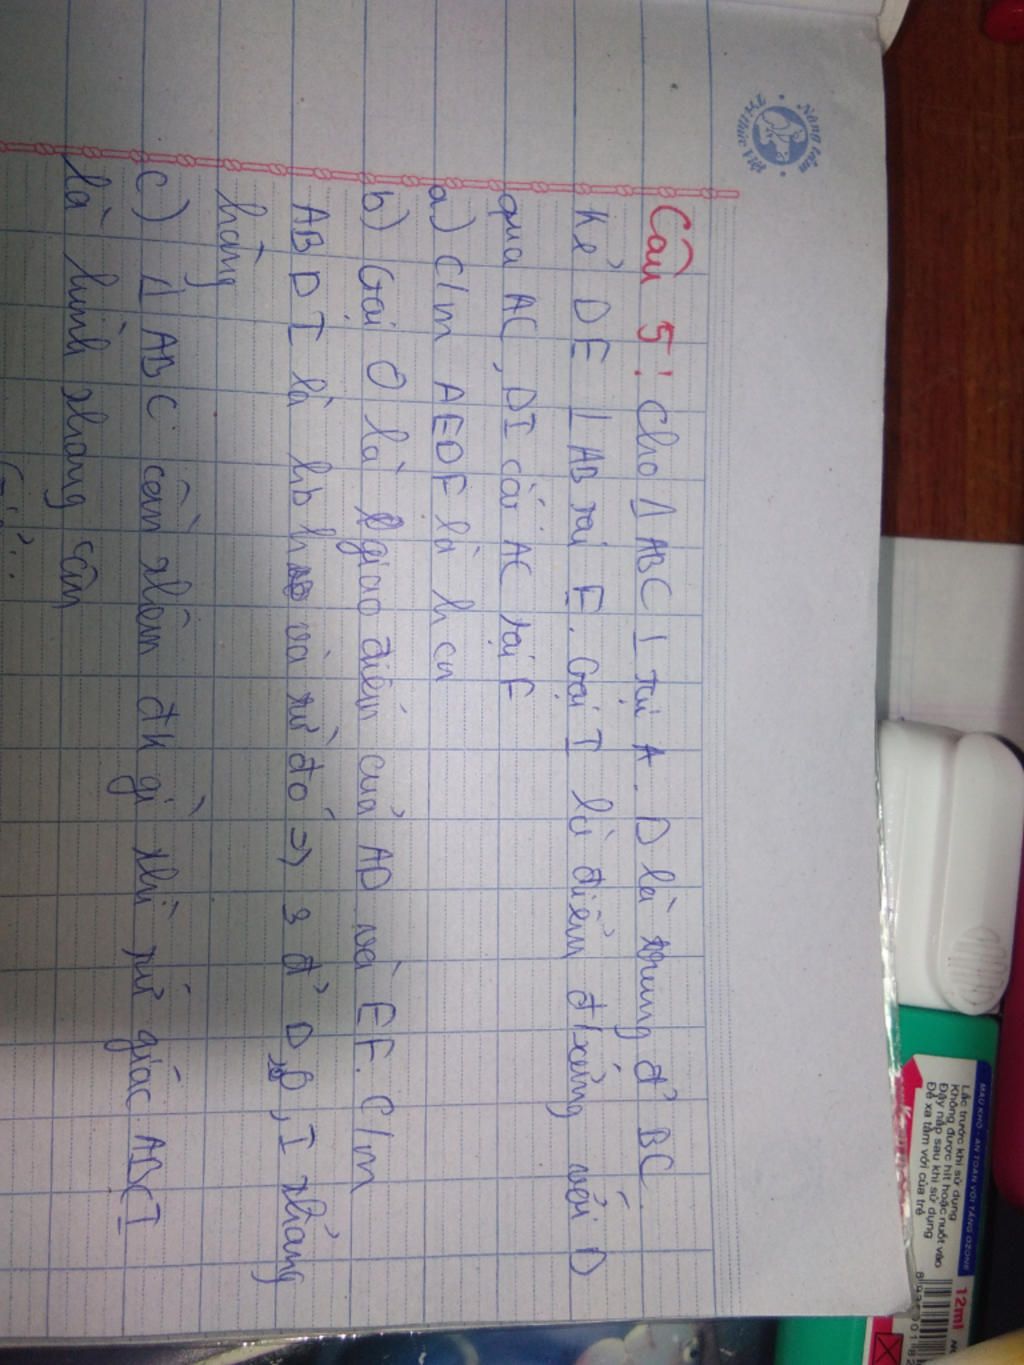 Câu 5! Cho Δ ABC ⊥ tại A. D là trung đ' BC.
Kẻ DE ⊥ AB tại E. Gọi I là điểm đ/xứng với D
qua AC, DI cắt AC tại F
a) c/m AEDF là hcn
b) Gọi O là giao điểm của AD và EF. C/m
ABDI là hbh và từ đó => 3 đ'
, I thẳng
hàng
c) Δ ABC cần thêm đk gì thì tứ giác ABCI
là hình thang cân
Nâng tầm
Tri thức Việt
MÀU KHÔ - AN TOÀN VỚI TẦNG OZONE
Lắc trước khi sử dụng
Không được hít hoặc nuốt vào
Đậy nắp sau khi sử dụng
Để xa tầm với của trẻ
12ml